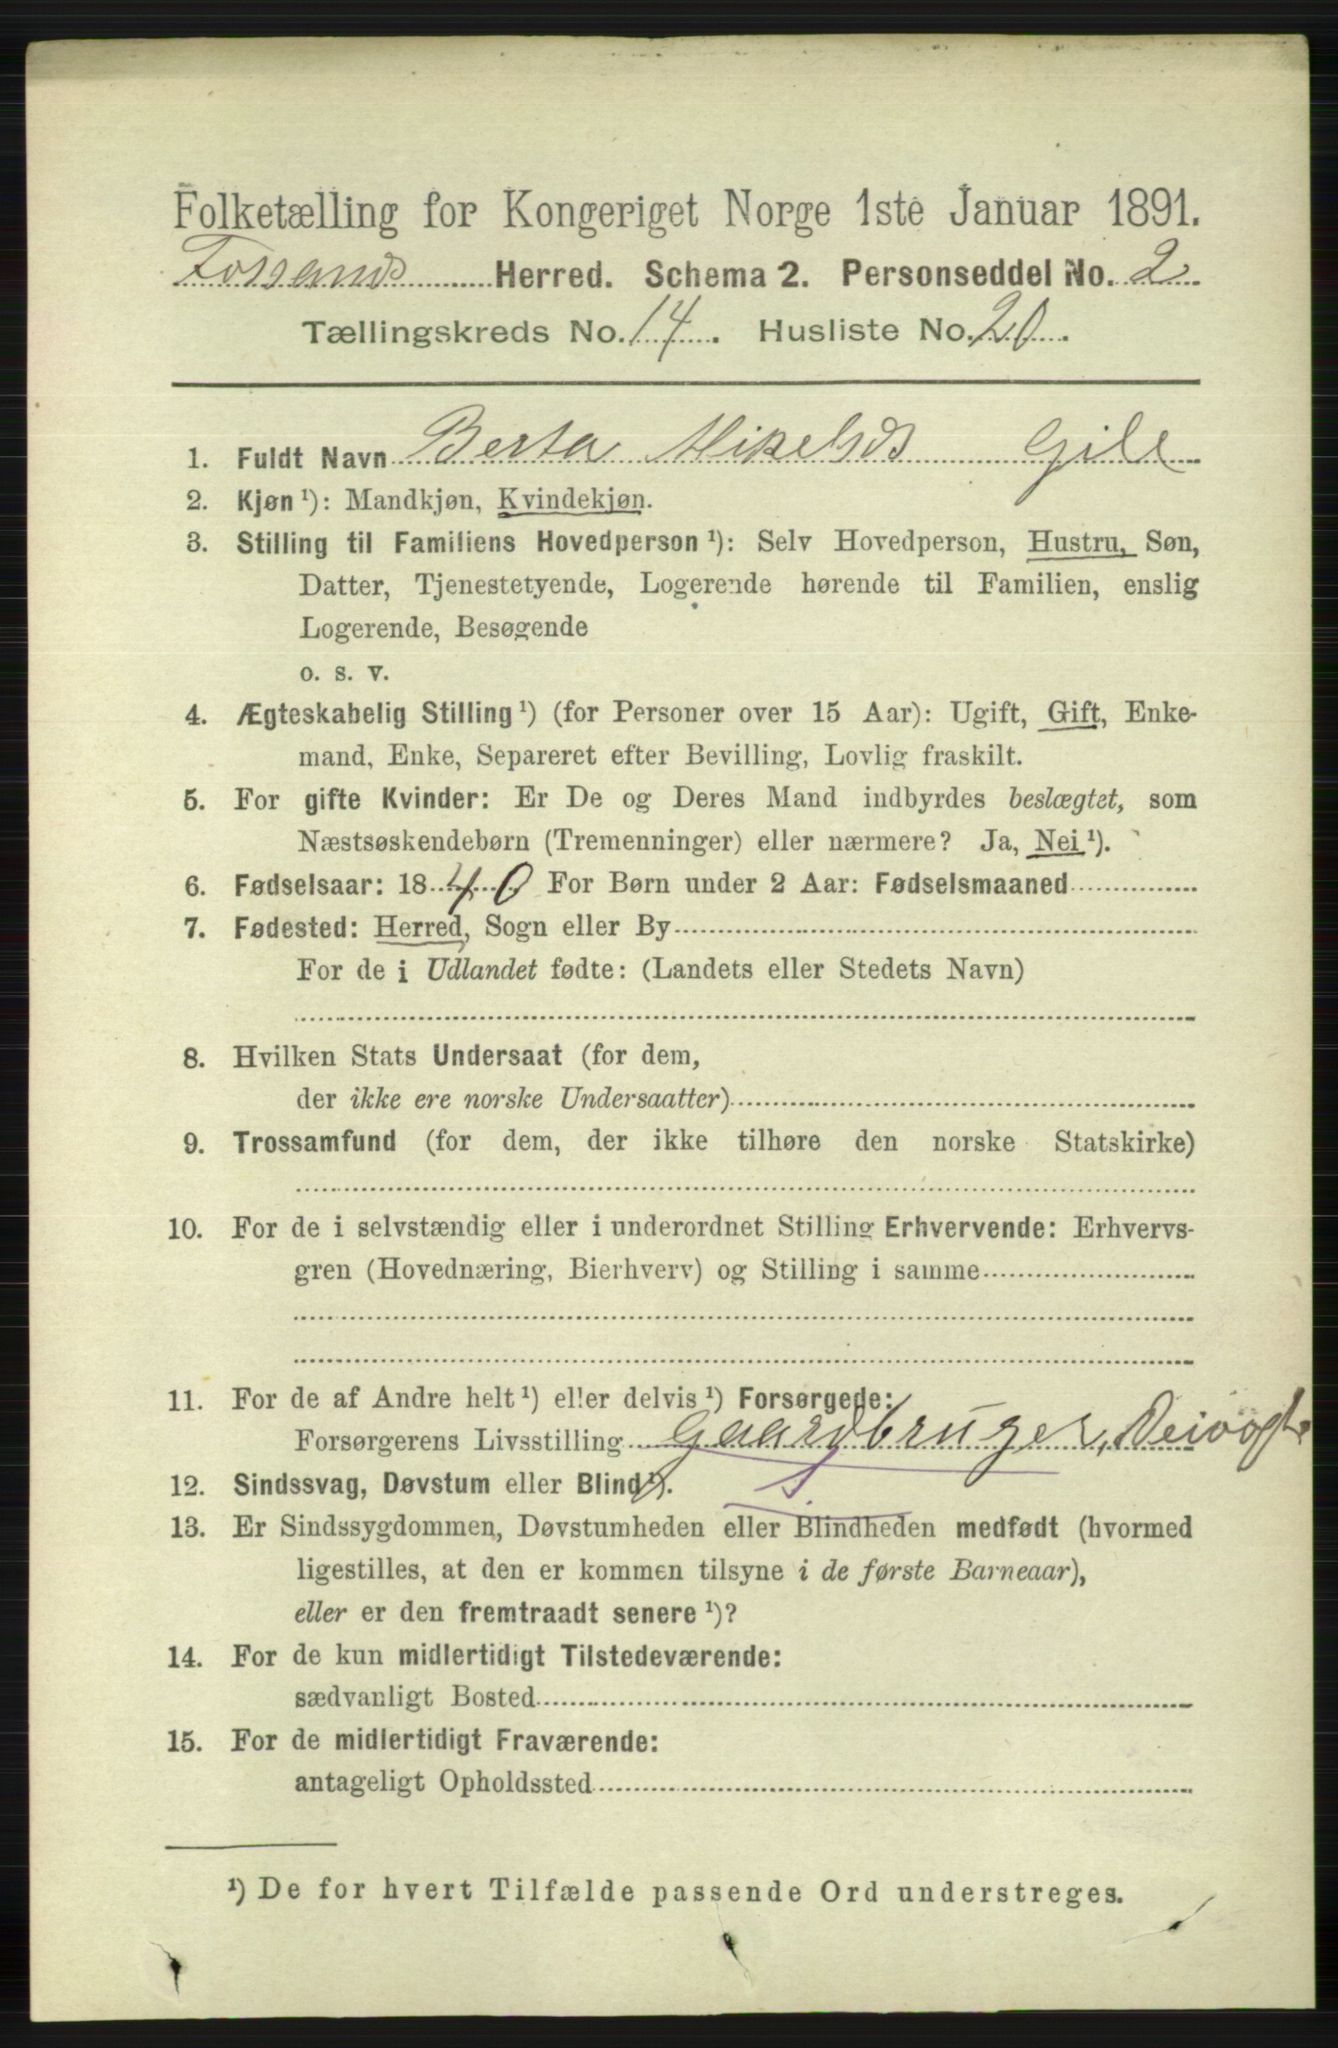 Folketælling for Kongeriget Norge 1ste Januar 1891.
Fossands Herred. Schema 2. Personseddel No. 2
Tællingskreds No. 14. Husliste No. 20.
1. Fuldt Navn Berta Mikelsds Gile
2. Kjøn ¹): Mandkjøn, Kvindekjøn.
3. Stilling til Familiens Hovedperson ¹): Selv Hovedperson, Hustru, Søn,
Datter, Tjenestetyende, Logerende hørende til Familien, enslig
Logerende, Besøgende
o. s. v.
4. Ægteskabelig Stilling ¹) (for Personer over 15 Aar): Ugift, Gift, Enke-
mand, Enke, Separeret efter Bevilling, Lovlig fraskilt.
5. For gifte Kvinder: Er De og Deres Mand indbyrdes beslægtet, som
Næstsøskendebørn (Tremenninger) eller nærmere? Ja, Nei ¹).
6. Fødselsaar: 1840. For Børn under 2 Aar: Fødselsmaaned
7. Fødested: Herred, Sogn eller By
For de i Udlandet fødte: (Landets eller Stedets Navn)
8. Hvilken Stats Undersaat (for dem,
der ikke ere norske Undersaatter)
9. Trossamfund (for dem, der ikke tilhøre den norske Statskirke)
10. For de i selvstændig eller i underordnet Stilling Erhvervende: Erhvervs-
gren (Hovednæring, Bierhverv) og Stilling i samme
11. For de af Andre helt ¹) eller delvis ¹) Forsørgede:
Forsørgerens Livsstilling Gaardbruger,
12. Sindssvag, Døvstum eller Blind ¹).
13. Er Sindssygdommen, Døvstumheden eller Blindheden medfødt (hvormed
ligestilles, at den er kommen tilsyne i de første Barneaar),
eller er den fremtraadt senere ¹)?
14. For de kun midlertidigt Tilstedeværende:
sædvanligt Bosted
15. For de midlertidigt Fraværende:
antageligt Opholdssted
¹) De for hvert Tilfælde passende Ord understreges.